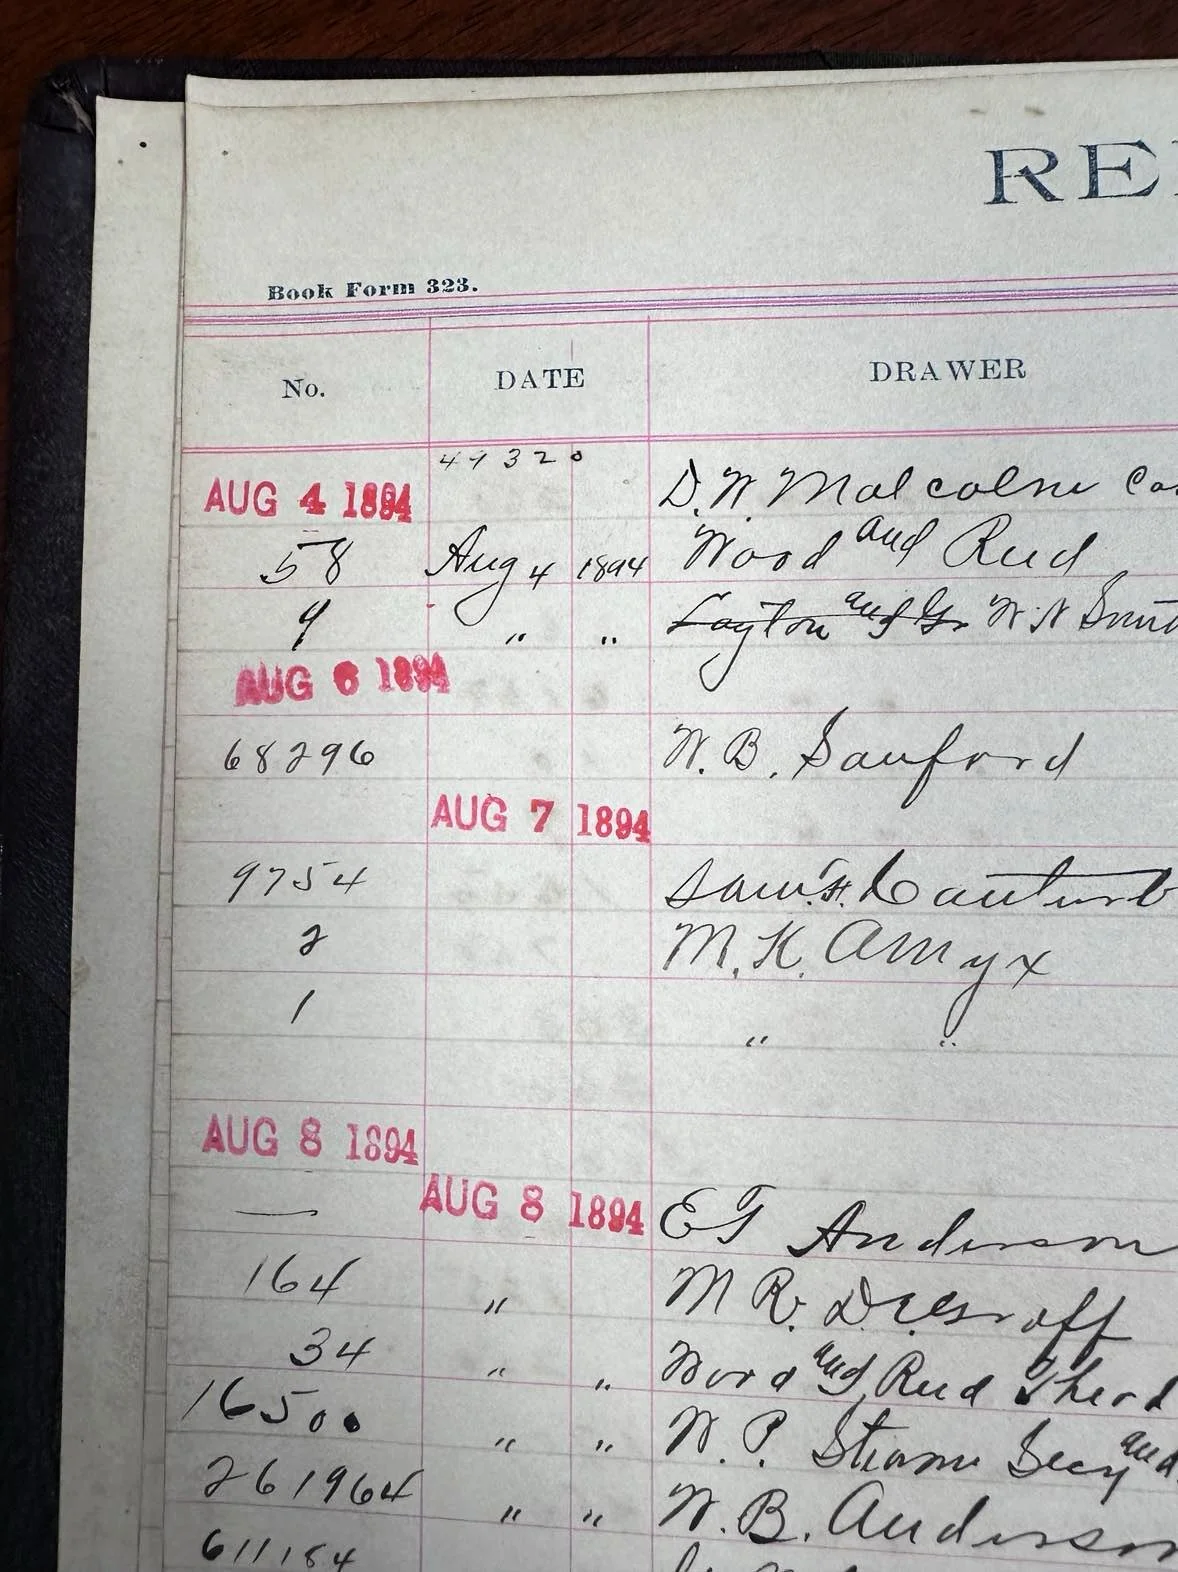 RE
Book Form 323.
No. DATE DRAWER
49320
AUG 4 1894 D. W. Malcolm Cas
58 Aug 4 1894 Wood and Reed
9 " " Layton and W. N Smit
AUG 6 1894
68296 W. B. Sanford
AUG 7 1894
9754 Saml. H.
2 M. K. Amyx
1 " "
AUG 8 1894
— AUG 8 1894 E T Anderson
164 " M R.
34 " " Word and Reed
16500 " " W. P. Secy and
261964 " " W. B. Anderson
611184